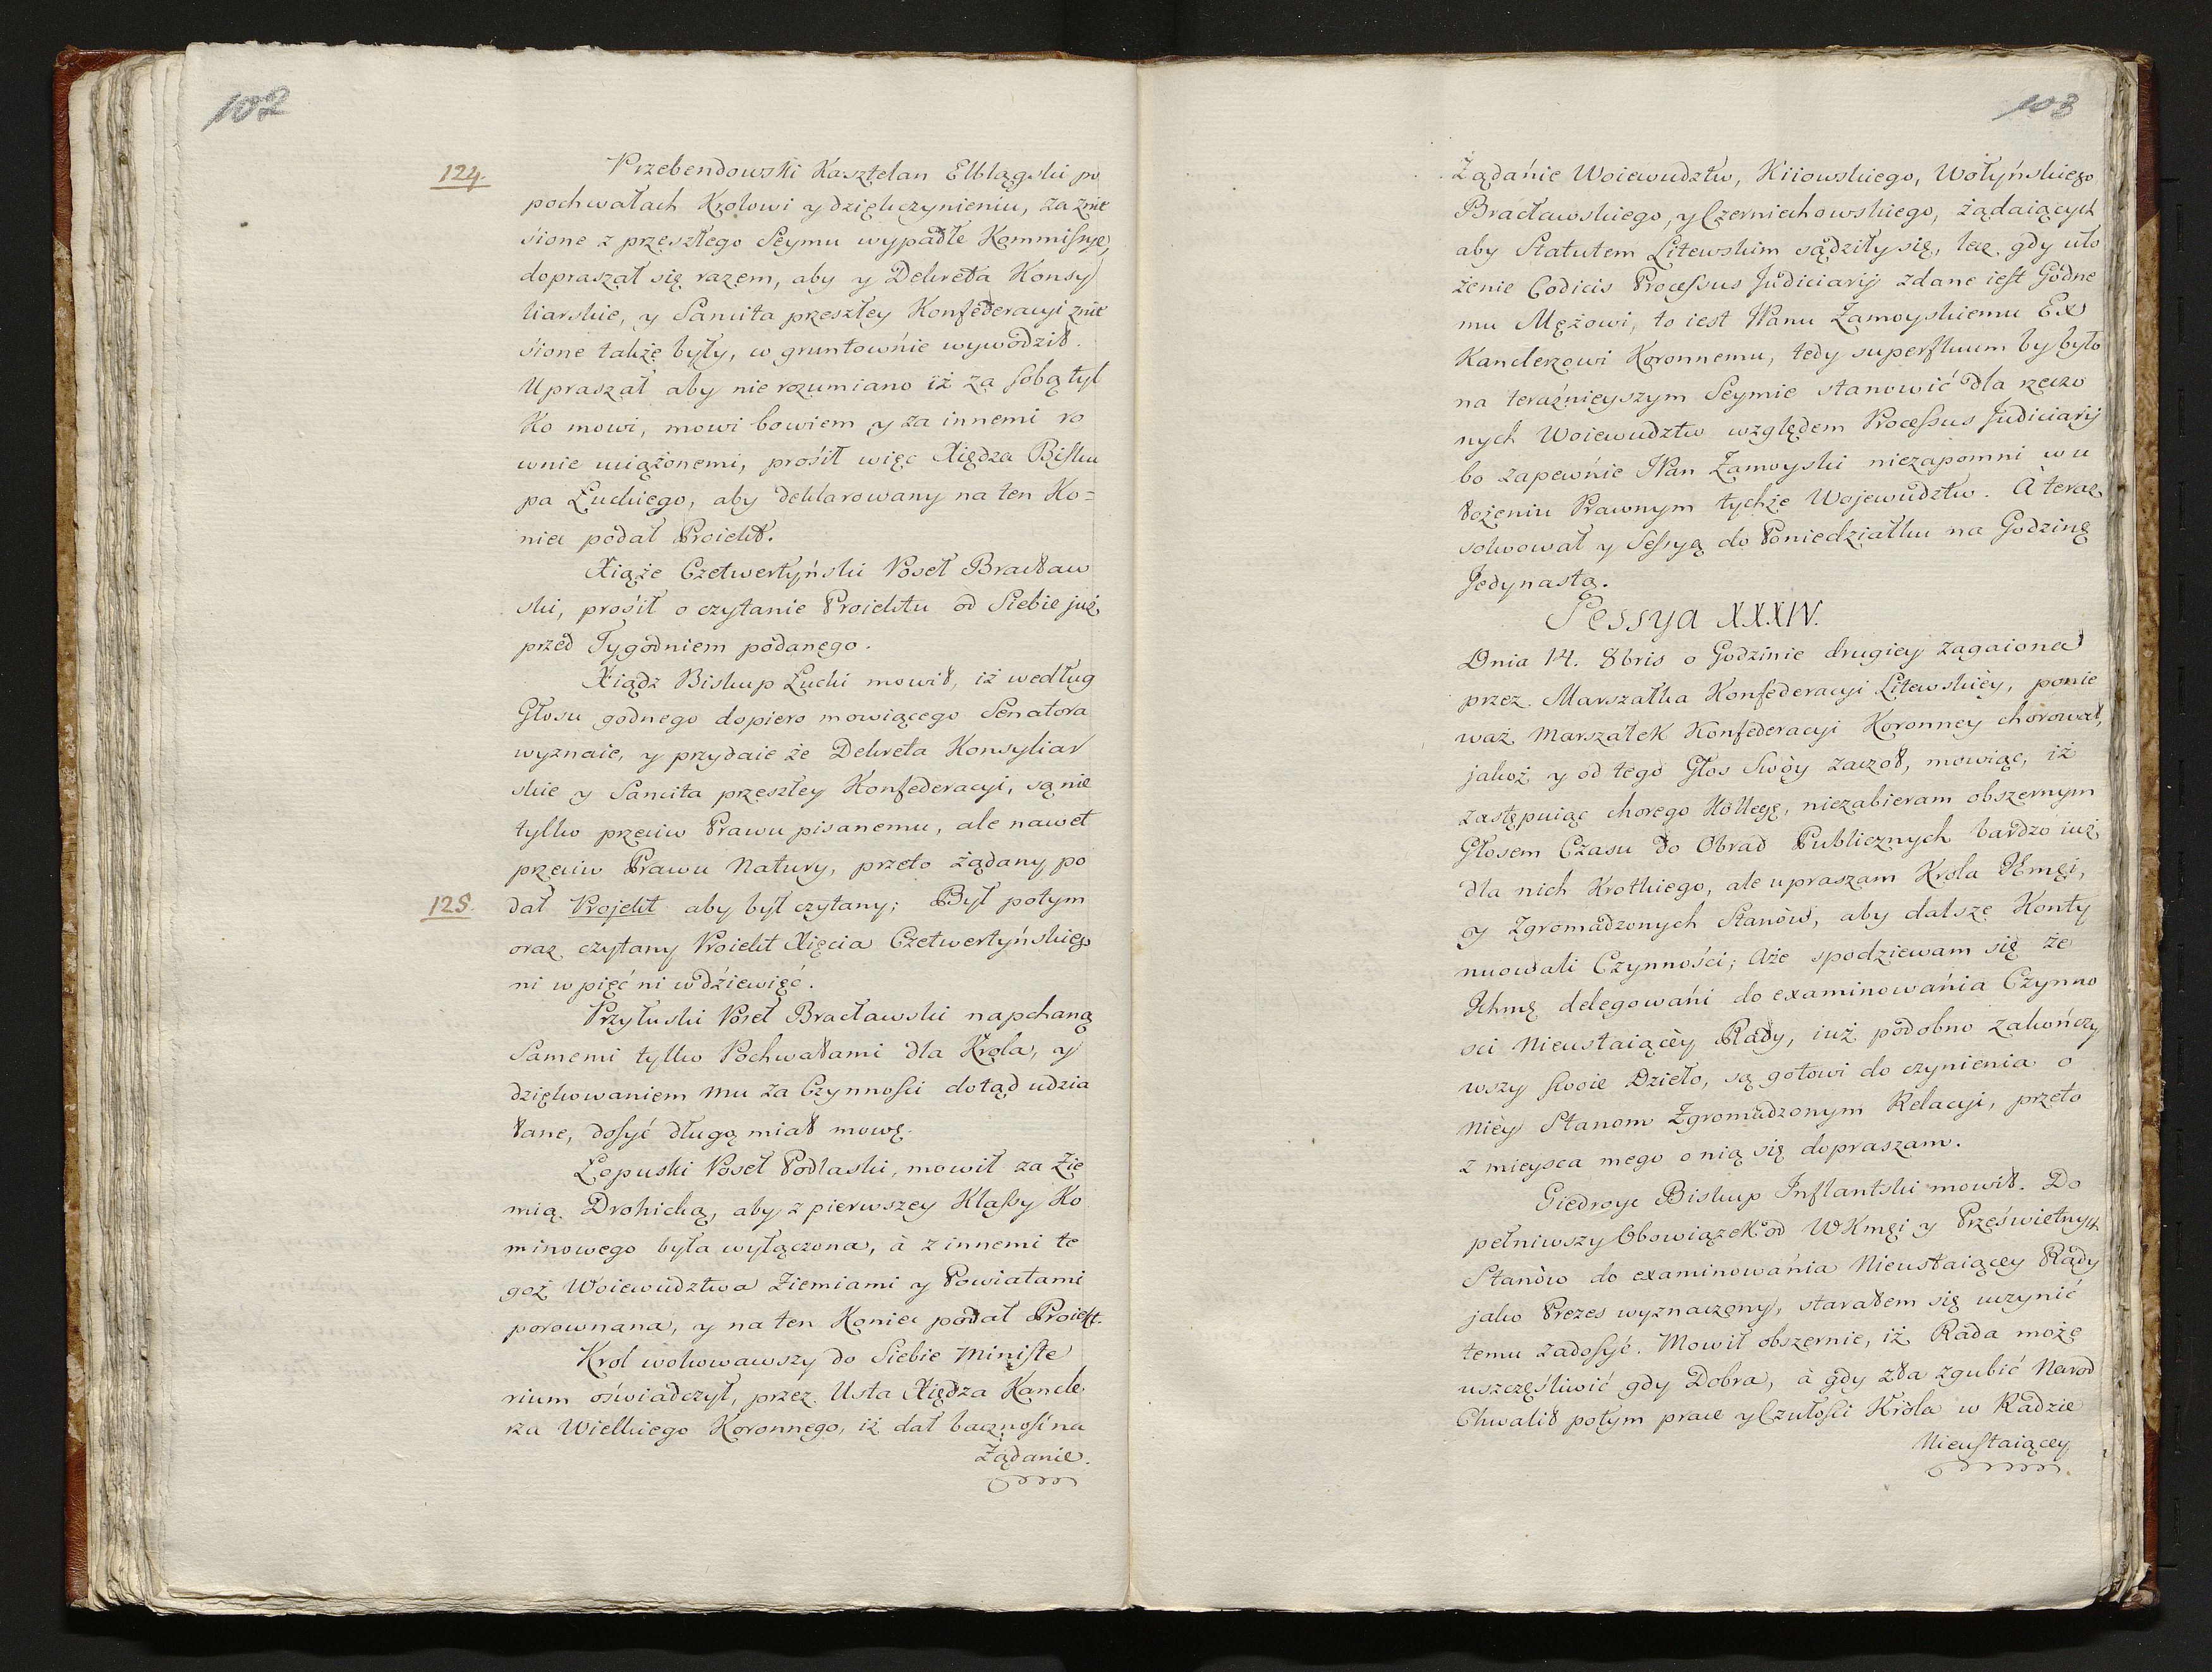 102
124.
Przebendowski Kasztelan Elblągski po
pochwałach Krolowi y dziękczynieniu, za znie
sione z przeszłego Seymu wypadłe Kommissye,
dopraszał się razem, aby y Dekreta Konsy
liarskie, y Sancita przeszłey Konfederacyi znie
sione także były, co gruntownie wywodził.
Upraszał aby nie rozumiano iż za sobą tyl
ko mowi, mowi bowiem y za innemi ro
wnie uciążonemi, prosił więc Xiędza Bisku
pa Łuckiego, aby deklarowany na ten Ko=
niec podał Proiekt.
Xiąże Czetwertyński Poseł Bracław
ski, prosił o czytanie Proiektu od Siebie już
przed Tygodniem podanego.
Xiądz Biskup Łucki mowił, iż według
Głosu godnego dopiero mowiącego Senatora
wyznaie, y przydaie że Dekreta Konsyliar
skie y Sancita przeszłey Konfederacyi, są nie
tylko przeciw Prawu pisanemu, ale nawet
przeciw Prawu Natury, przeto żądany po
125.
dał Projekt aby był czytany; Był potym
oraz czytany Proiekt Xięcia Czetwertyńskiego
ni w pięć ni w dziewięć.
Przyłuski Poseł Bracławski napchaną
Samemi tylko Pochwałami dla Krola, y
dziękowaniem mu za Czynności dotąd udzia
łane, dosyć długą miał mowę.
Łopuski Poseł Podlaski, mowił za Zie
mią Drohicką, aby z pierwszey Klassy Ko
minowego była wyłączona, à z innemi te
goż Woiewudztwa Ziemiami y Powiatami
porownana, y na ten Koniec podał Proiekt.
Krol wokowawszy do Siebie Ministe
rium oświadczył, przez Usta Xiędza Kancle
rza Wielkiego Koronnego, iż dał baczność na
Żądanie.
103
Żądanie Woiewudztw, Kiiowskiego, Wołyńskiego
Bracławskiego, y Czerniechowskiego, żądaiących
aby Statutem Litewskim sądziły się, lecz gdy uło
żenie Codicis Processus Judiciarij zdane iest Godne
mu Mężowi, to iest JPanu Zamoyskiemu Ex
Kanclerzowi Koronnemu, tedy superfluum by było
na teraznieyszym Seymie stanowić dla rzeczo
nych Woiewudztw względem Processus Judiciarij
bo zapewnie JPan Zamoyski niezapomni w u
łożeniu Prawnym tychże Wojewudztw. À teraz
solwował y Sessyą do Poniedziałku na Godzinę
Jedynastą.
Sessya XXXIV.
Dnia 14. 8bris o Godzinie drugiey zagaiona
przez Marszałka Konfederacyi Litewskiéy, ponie
waż Marszałek Konfederacyi Koronney chorował,
jakoż y od tego Głos Swóy zaczoł, mowiąc, iż
zastępuiąc chorego Kollegę, niezabieram obszernym
Głosem Czasu do Obrad Publicznych bardzo iuż
dla nich Krotkiego, ale upraszam Krola JEmci,
y Zgromadzonych Stanów, aby dalsze Konty
nuowali Czynności; Aże spodziewam się że
Ichmę delegowani do examinowania Czynno
sci Nieustaiącéy Rady, iuż podobno zakończy
wszy swoie Dzieło, są gotowi do czynienia o
niéy Stanom Zgromadzonym Relacyi, przeto
z mieysca mego o nią się dopraszam.
Giedroyc Biskup Inflantski mowił. Do
pełniwszy Obowiązek od WKmci y Prześwietnych
Stanów do examinowania Nieustaiącey Rady
jako Prezes wyznaczony, starałem się uczynić
temu zadosyć. Mowił obszernie, iż Rada może
uszczęśliwić gdy Dobra, à gdy zła zgubić Narod
Chwalił potym prace y Czułości Króla w Radzie
Nieustaiącey